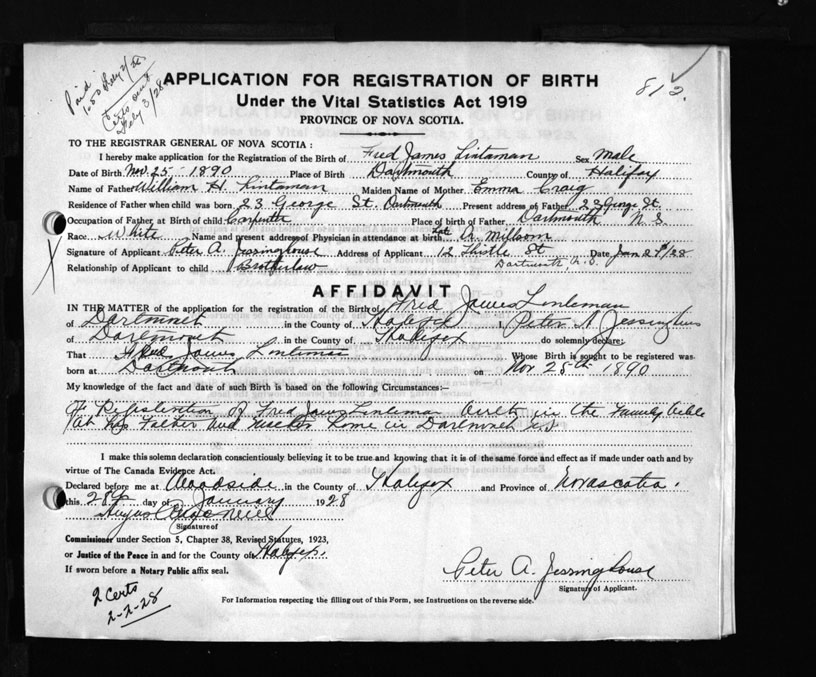 Paid
1.50 Feby 2/28
Certs sent
Feby 3/28
812.
APPLICATION FOR REGISTRATION OF BIRTH
Under the Vital Statistics Act 1919
PROVINCE OF NOVA SCOTIA.
TO THE REGISTRAR GENERAL OF NOVA SCOTIA:
I hereby make application for the Registration of the Birth of Fred James Lintaman Sex Male
Date of Birth Nov. 25 1890 Place of Birth Dartmouth County of Halifax
Name of Father William H. Lintaman Maiden Name of Mother Emma Craig
Residence of Father when child was born 23 George St. Dartmouth Present address of Father 23 George St.
Occupation of Father at Birth of child Carpenter Place of birth of Father Dartmouth N.S.
Race White Name and present address of Physician in attendance at birth Late Dr. Millsom
Signature of Applicant Peter A. Jessinghouse Address of Applicant 12 Thistle St Date Jan 27th/28
Relationship of Applicant to child Brotherlaw Dartmouth, N.S.
AFFIDAVIT
IN THE MATTER of the application for registration of the Birth of Fred James Linteman
of Dartmnet in the County of Halifox I, Peter A Jessinghus
of Daremouth in the County of Halifex do solemnly declare:
That Fred James Linteman Whose Birth is sought to be registered was
born at Dartmouth on Nov 25th 1890
My knowledge of the fact and date of such Birth is based on the following Circumstances:—
of Registeration of Fred James Linteman Birth in the Family Bible
at his Father and Mother home in Daremnet NS
I make this solemn declaration conscientiously believing it to be true and knowing that it is of the same force and effect as if made under oath and by
virtue of The Canada Evidence Act.
Declared before me at Woodside in the County of Halifox and Province of Novascotia.
this 28th day of January 1928
Signature of
Commissioner under Section 5, Chapter 38, Revised Statutes, 1923,
or Justice of the Peace in and for the County of Halifex.
If sworn before a Notary Public affix seal.
Peter A. Jessinghouse
Signature of Applicant.
2 Certs
2-2-28
For Information respecting the filling out of this Form, see Instructions on the reverse side.